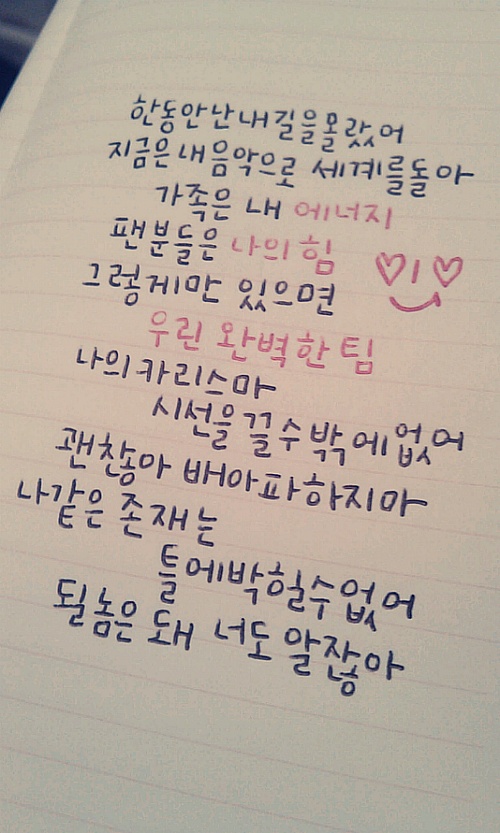 한동안 난 내 길을 몰랐어
지금은 내 음악으로 세계를 돌아
가족은 내 에너지
팬분들은 나의 힘
그렇게만 있으면
우린 완벽한 팀
나의 카리스마
시선을 끌 수 밖에 없어
괜찮아 배아파하지마
나같은 존재는
틀에 박힐 수 없어
될놈은 돼 너도 알잖아